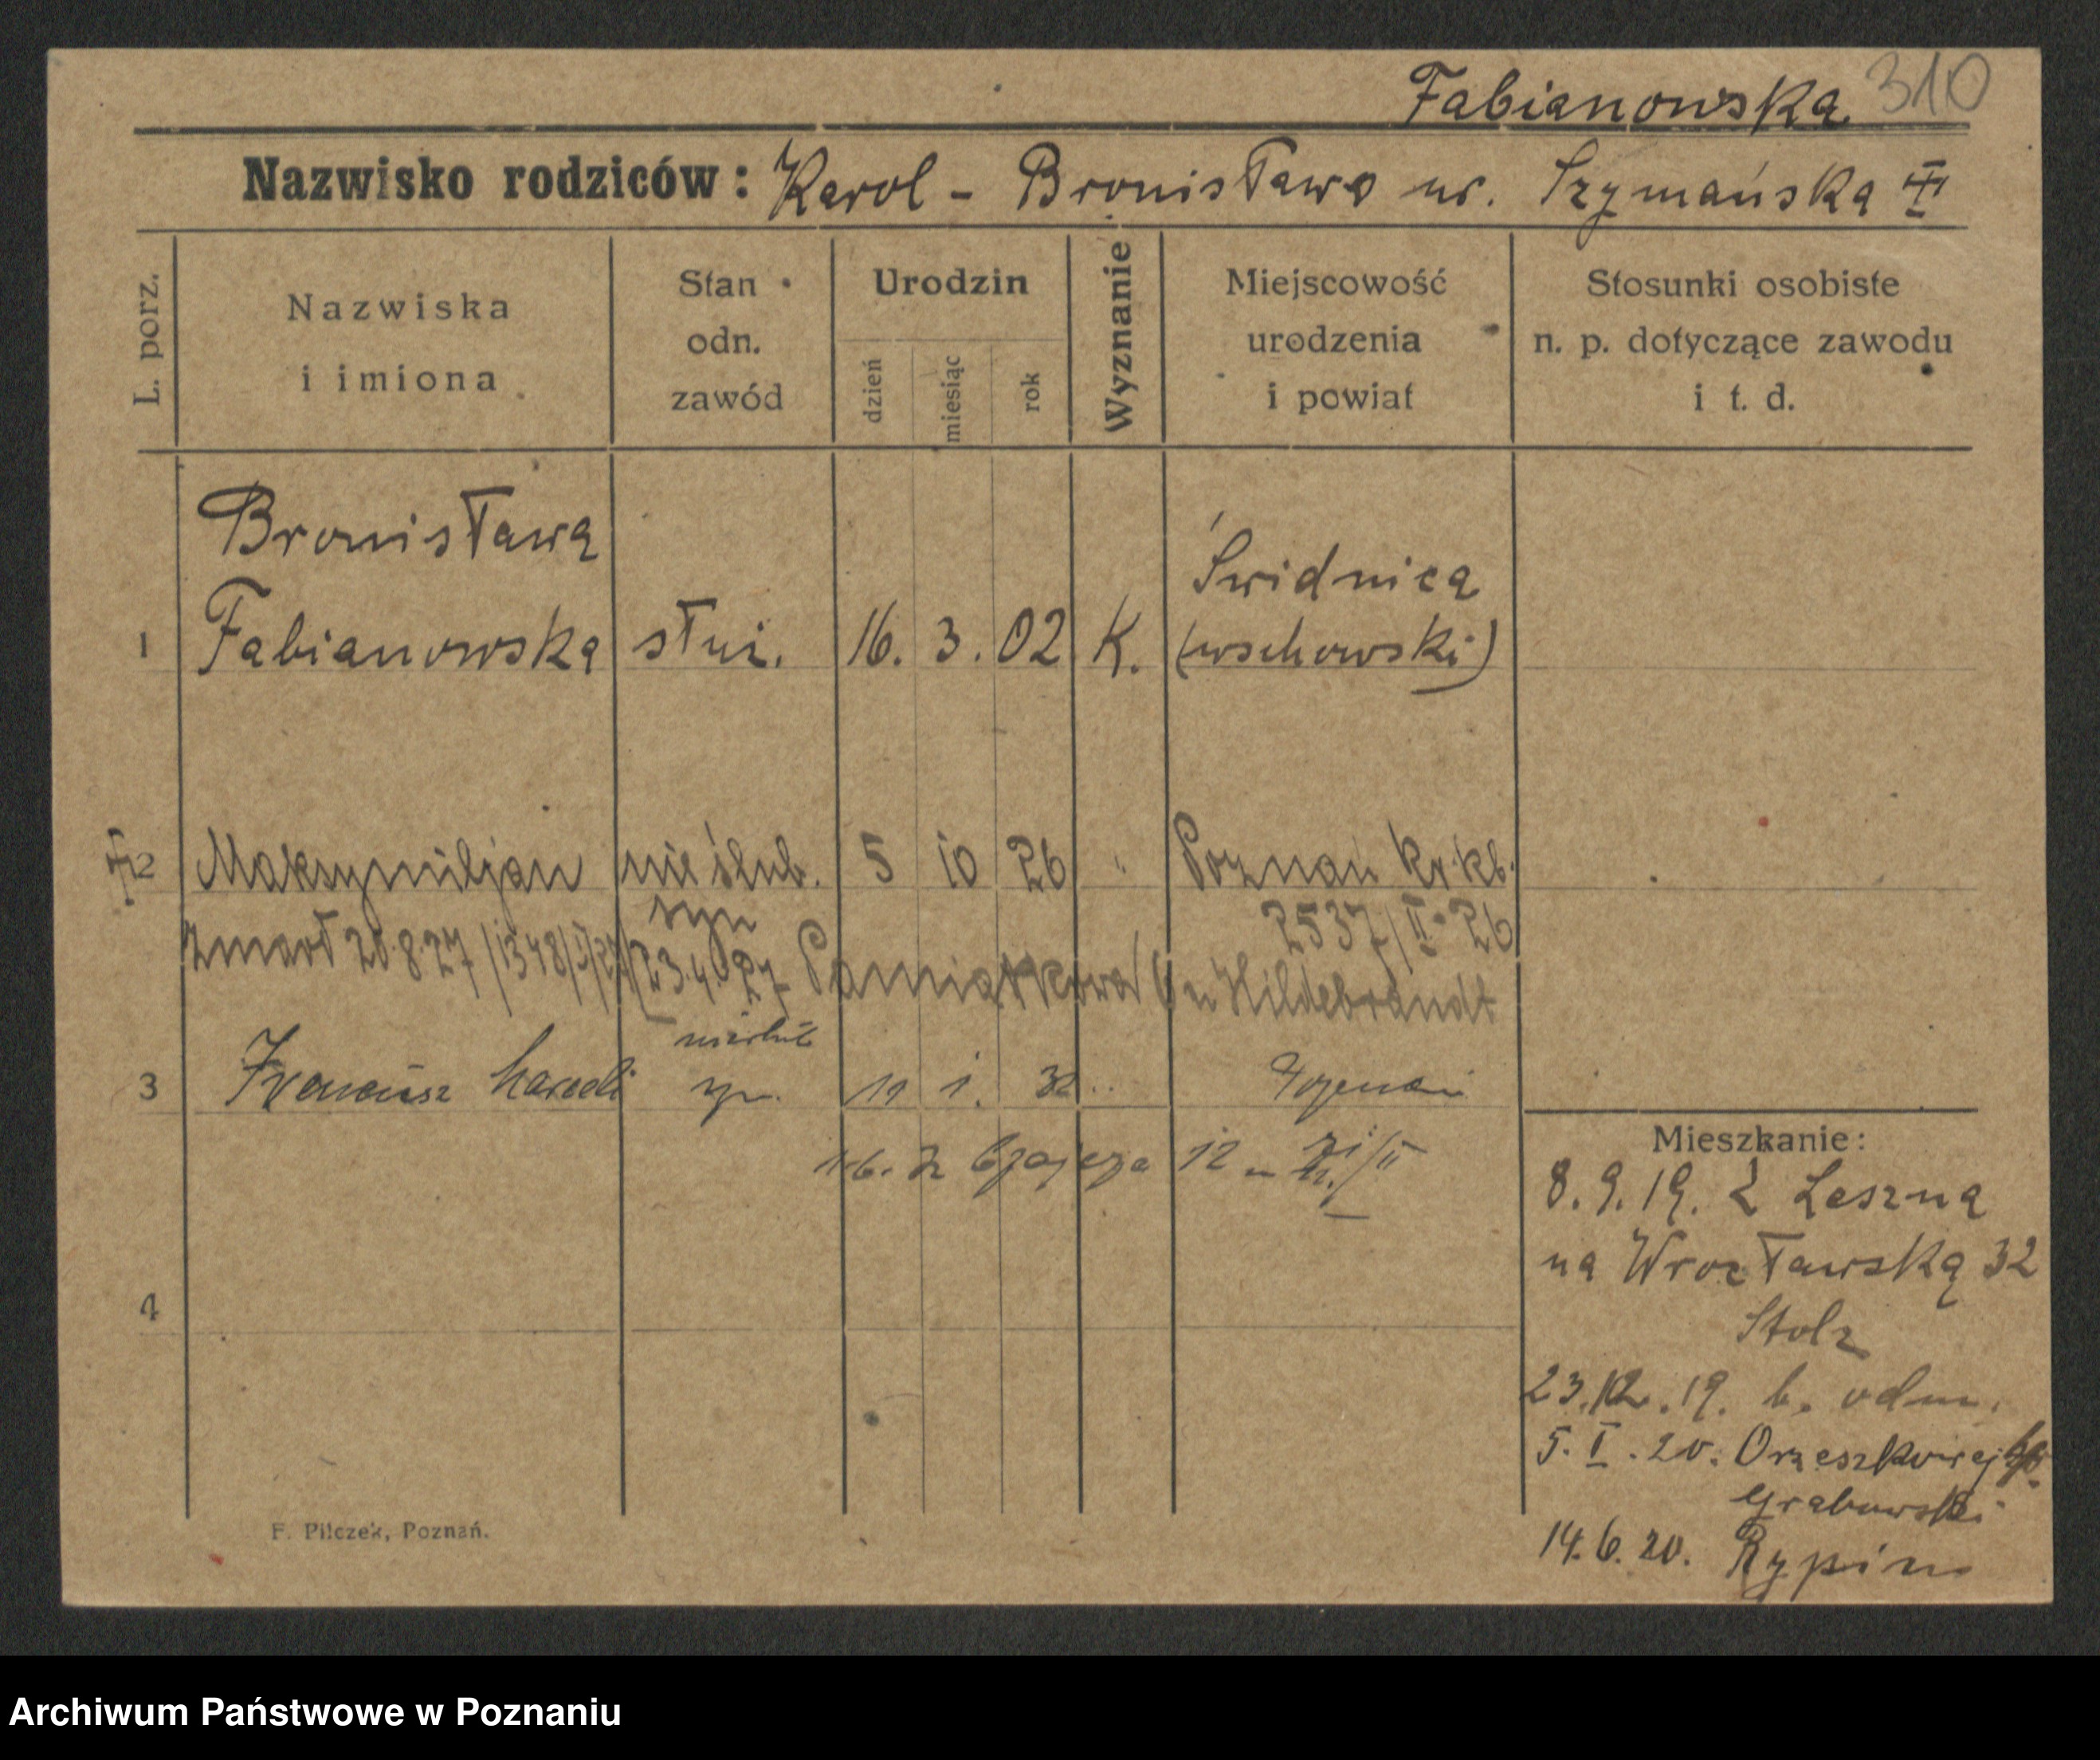 Fabianowska 310
Nazwisko rodziców: Karol - Bronisława ur. Szymańska
L. porz.
Nazwiska
i imiona
Stan
odn.
zawód
Urodzin
dzień
miesiąc
rok
Wyznanie
Miejscowość
urodzenia
i powiat
Stosunki osobiste
n. p. dotyczące zawodu
i t. d.
Bronisława
Świdnica
1 Fabianowska służ. 16. 3. 02 K. (wschowski)
2 Maksymiljan nieślub. 5 10 26 " Poznań
syn
2537/II-26
zmarł 20.8.27
Pamiątkowa u Hildebrandt
3 11 1. 32 Poznań
12
4
Mieszkanie:
8.9.19. z Leszna
na Wrocławską 32
Stolz
23.12.19. b. odm.
5. I. 20. Orzeszkowej
Grabowski
14.6.20. Rypin
F. Pilczek, Poznań.
Archiwum Państwowe w Poznaniu